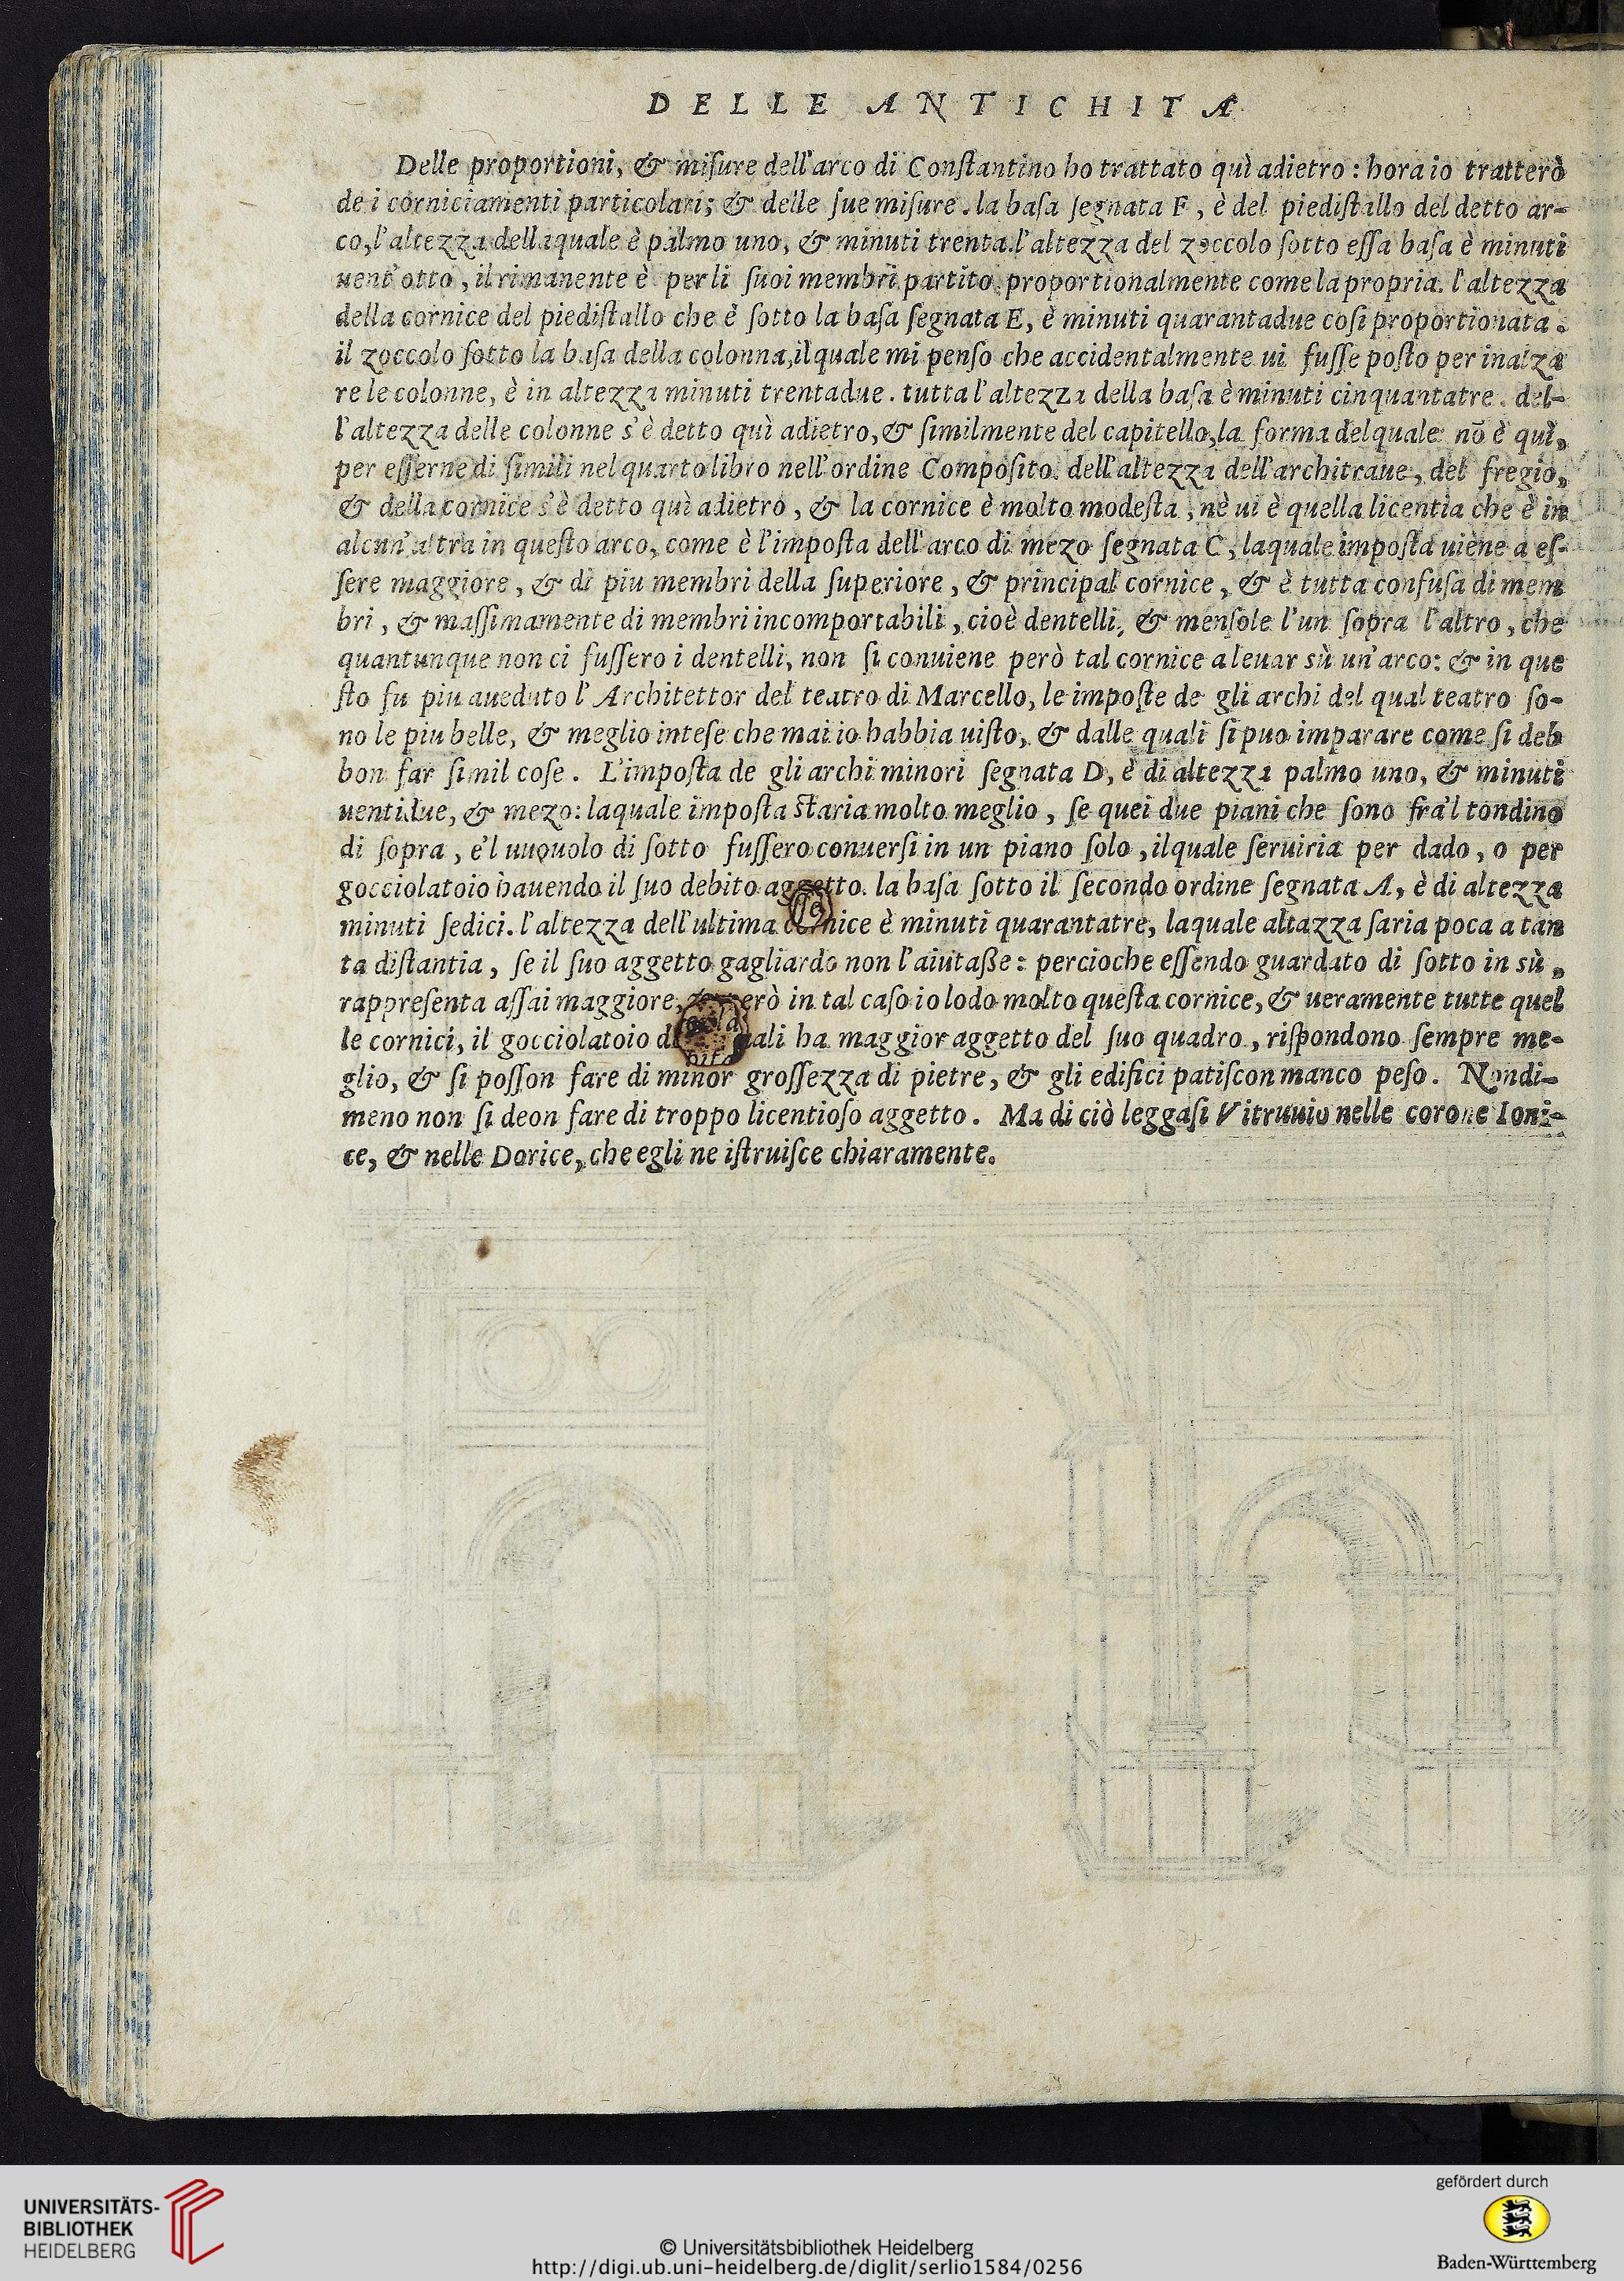 DELLE ANTICHITA
Delle proportioni, & miſure dell'arco di Conſtantino ho trattato quì adietro: hora io tratterò
de i corniciamenti particolari; & delle ſue miſure. la baſa ſegnata F, è del piediſtallo del detto ar-
co, l'altezza dellaquale è palmo uno, & minuti trenta. l'altezza del zoccolo ſotto eſſa baſa è minuti
uent'otto, il rimanente è per li ſuoi membri partito proportionalmente come la propria. l'altezza
della cornice del piediſtallo che è ſotto la baſa ſegnata E, è minuti quarantadue coſi proportionata.
il zoccolo ſotto la baſa della colonna, ilquale mi penſo che accidentalmente ui fuſſe poſto per inalza
re le colonne, è in altezza minuti trentadue. tutta l'altezza della baſa è minuti cinquantatre. del-
l'altezza delle colonne s'è detto quì adietro, & ſimilmente del capitello, la forma delquale nō è quì,
per eſſerne di ſimili nel quarto libro nell'ordine Compoſito. dell'altezza dell'architraue, del fregio,
& della cornice s'è detto quì adietro, & la cornice è molto modeſta, nè ui è quella licentia che è in
alcun'altra in queſto arco, come è l'impoſta dell'arco di mezo ſegnata C, laquale impoſta uiene a eſ-
ſere maggiore, & di piu membri della ſuperiore, & principal cornice, & è tutta confuſa di mem
bri, & maſſimamente di membri incomportabili, cioè dentelli, & menſole l'un ſopra l'altro, che
quantunque non ci fuſſero i dentelli, non ſi conuiene però tal cornice a leuar sù un'arco: & in que
ſto fu piu aueduto l'Architettor del teatro di Marcello, le impoſte de gli archi del qual teatro ſo-
no le piu belle, & meglio inteſe che mai io habbia uiſto, & dalle quali ſi puo imparare come ſi deb
bon far ſimil coſe. L'impoſta de gli archi minori ſegnata D, è di altezza palmo uno, & minuti
uentidue, & mezo: laquale impoſta ſtaria molto meglio, ſe quei due piani che ſono fra'l tondino
di ſopra, e'l uuouolo di ſotto fuſſero conuerſi in un piano ſolo, ilquale ſeruiria per dado, o per
gocciolatoio hauendo il ſuo debito aggetto. la baſa ſotto il ſecondo ordine ſegnata A, è di altezza
minuti ſedici. l'altezza dell'ultima cornice è minuti quarantatre, laquale altazza ſaria poca a tan
ta diſtantia, ſe il ſuo aggetto gagliardo non l'aiutaße: percioche eſſendo guardato di ſotto in sù,
rappreſenta aſſai maggiore, & però in tal caſo io lodo molto queſta cornice, & ueramente tutte quel
le cornici, il gocciolatoio ha maggior aggetto del ſuo quadro, riſpondono ſempre me-
glio, & ſi poſſon fare di minor groſſezza di pietre, & gli edifici patiſcon manco peſo. Nondi-
meno non ſi deon fare di troppo licentioſo aggetto. Ma di ciò leggaſi Vitruuio nelle corone Ioni-
ce, & nelle Dorice, che egli ne iſtruiſce chiaramente.
UNIVERSITÄTS-
BIBLIOTHEK
HEIDELBERG
© Universitätsbibliothek Heidelberg
http://digi.ub.uni-heidelberg.de/diglit/serlio1584/0256
gefördert durch
Baden-Württemberg